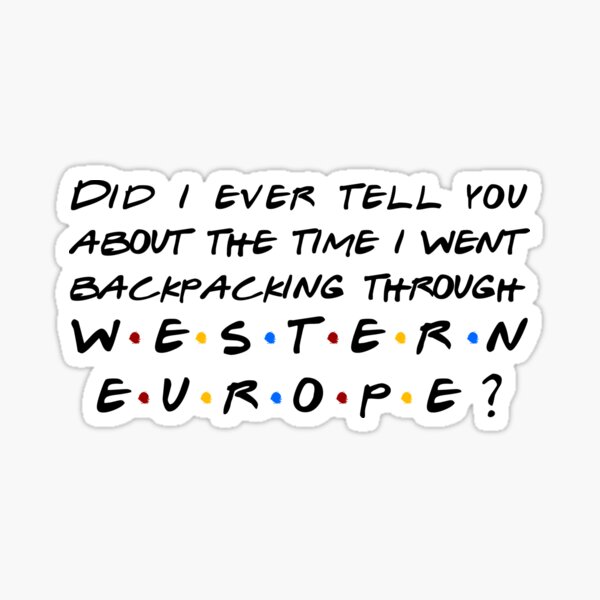 DID I EVER TELL YOU
ABOUT THE TIME I WENT
BACKPACKING THROUGH
W•E•S•T•E•R•N
E•U•R•O•P•E?